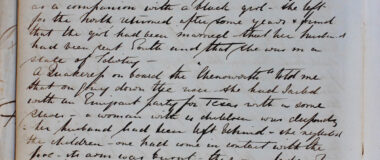 as a companion with a black girl – she left
for the North returned after some years & found
that the girl had been married – that her husband
had been sent South and that she was in a
state of
A Quakeress on board the "Chenoworth" told me
that on going down the she had sailed
with an Emigrant party for Texas with a some
slaves – a woman with is children was desponding
– her husband had been left behind – she neglected
the children – one had come in contact with the
fire – its arm was burnt